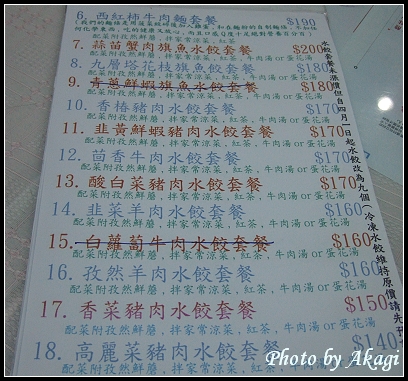 6. 西紅柿牛肉麵套餐 $190
7. 蒜苗蟹肉旗魚水餃套餐 $200
配菜附孜然鮮蘑，拌家常涼菜，紅茶，牛肉湯or蛋花湯
8. 九層塔花枝旗魚水餃套餐 $180
配菜附孜然鮮蘑，拌家常涼菜，紅茶，牛肉湯or蛋花湯
9. 青蔥鮮蝦旗魚水餃套餐 $180
配菜附孜然鮮蘑，拌家常涼菜，紅茶，牛肉湯or蛋花湯
10. 香椿豬肉水餃套餐 $170
配菜附孜然鮮蘑，拌家常涼菜，紅茶，牛肉湯or蛋花湯
11. 韭黃鮮蝦豬肉水餃套餐 $170
配菜附孜然鮮蘑，拌家常涼菜，紅茶，牛肉湯or蛋花湯
12. 茴香牛肉水餃套餐 $170
配菜附孜然鮮蘑，拌家常涼菜，紅茶，牛肉湯or蛋花湯
13. 酸白菜豬肉水餃套餐 $170
配菜附孜然鮮蘑，拌家常涼菜，紅茶，牛肉湯or蛋花湯
14. 韭菜羊肉水餃套餐 $160
配菜附孜然鮮蘑，拌家常涼菜，紅茶，牛肉湯or蛋花湯
15. 白蘿蔔牛肉水餃套餐 $160
配菜附孜然鮮蘑，拌家常涼菜，紅茶，牛肉湯or蛋花湯
16. 孜然羊肉水餃套餐 $160
配菜附孜然鮮蘑，拌家常涼菜，紅茶，牛肉湯or蛋花湯
17. 香菜豬肉水餃套餐 $150
配菜附孜然鮮蘑，拌家常涼菜，紅茶，牛肉湯or蛋花湯
18. 高麗菜豬肉水餃套餐 $140
水餃套餐未漲價但自四月一日起水餃改為九個（冷凍水餃維持原價請先
Photo by Akagi